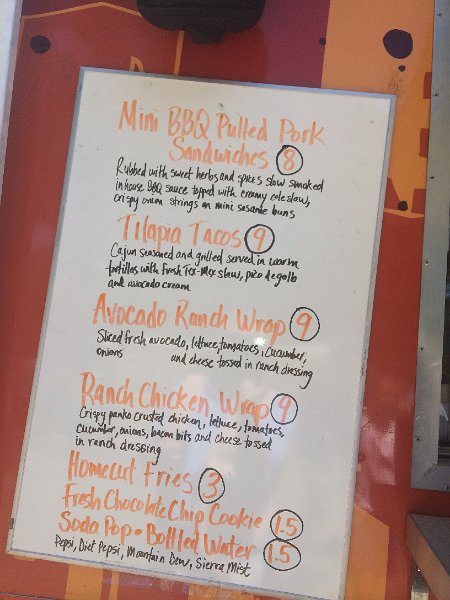 Mini BBQ Pulled Pork
Sandwiches 8
Rubbed with sweet herbs and spices slow smoked
in house BBQ sauce topped with creamy coleslaw,
crispy onion strings on mini sesame buns
Tilapia Tacos 9
Cajun seasoned and grilled served in warm
tortillas with fresh Tex-Mex slaw, pico de gallo
and avocado cream
Avocado Ranch Wrap 9
Sliced fresh avocado, lettuce, tomatoes, cucumber,
onions and cheese tossed in ranch dressing
Ranch Chicken Wrap 9
Crispy panko crusted chicken, lettuce, tomatoes,
cucumber, onions, bacon bits and cheese tossed
in ranch dressing
Homecut Fries 3
Fresh Chocolate Chip Cookie 1.5
Soda Pop • Bottled Water 1.5
Pepsi, Diet Pepsi, Mountain Dew, Sierra Mist